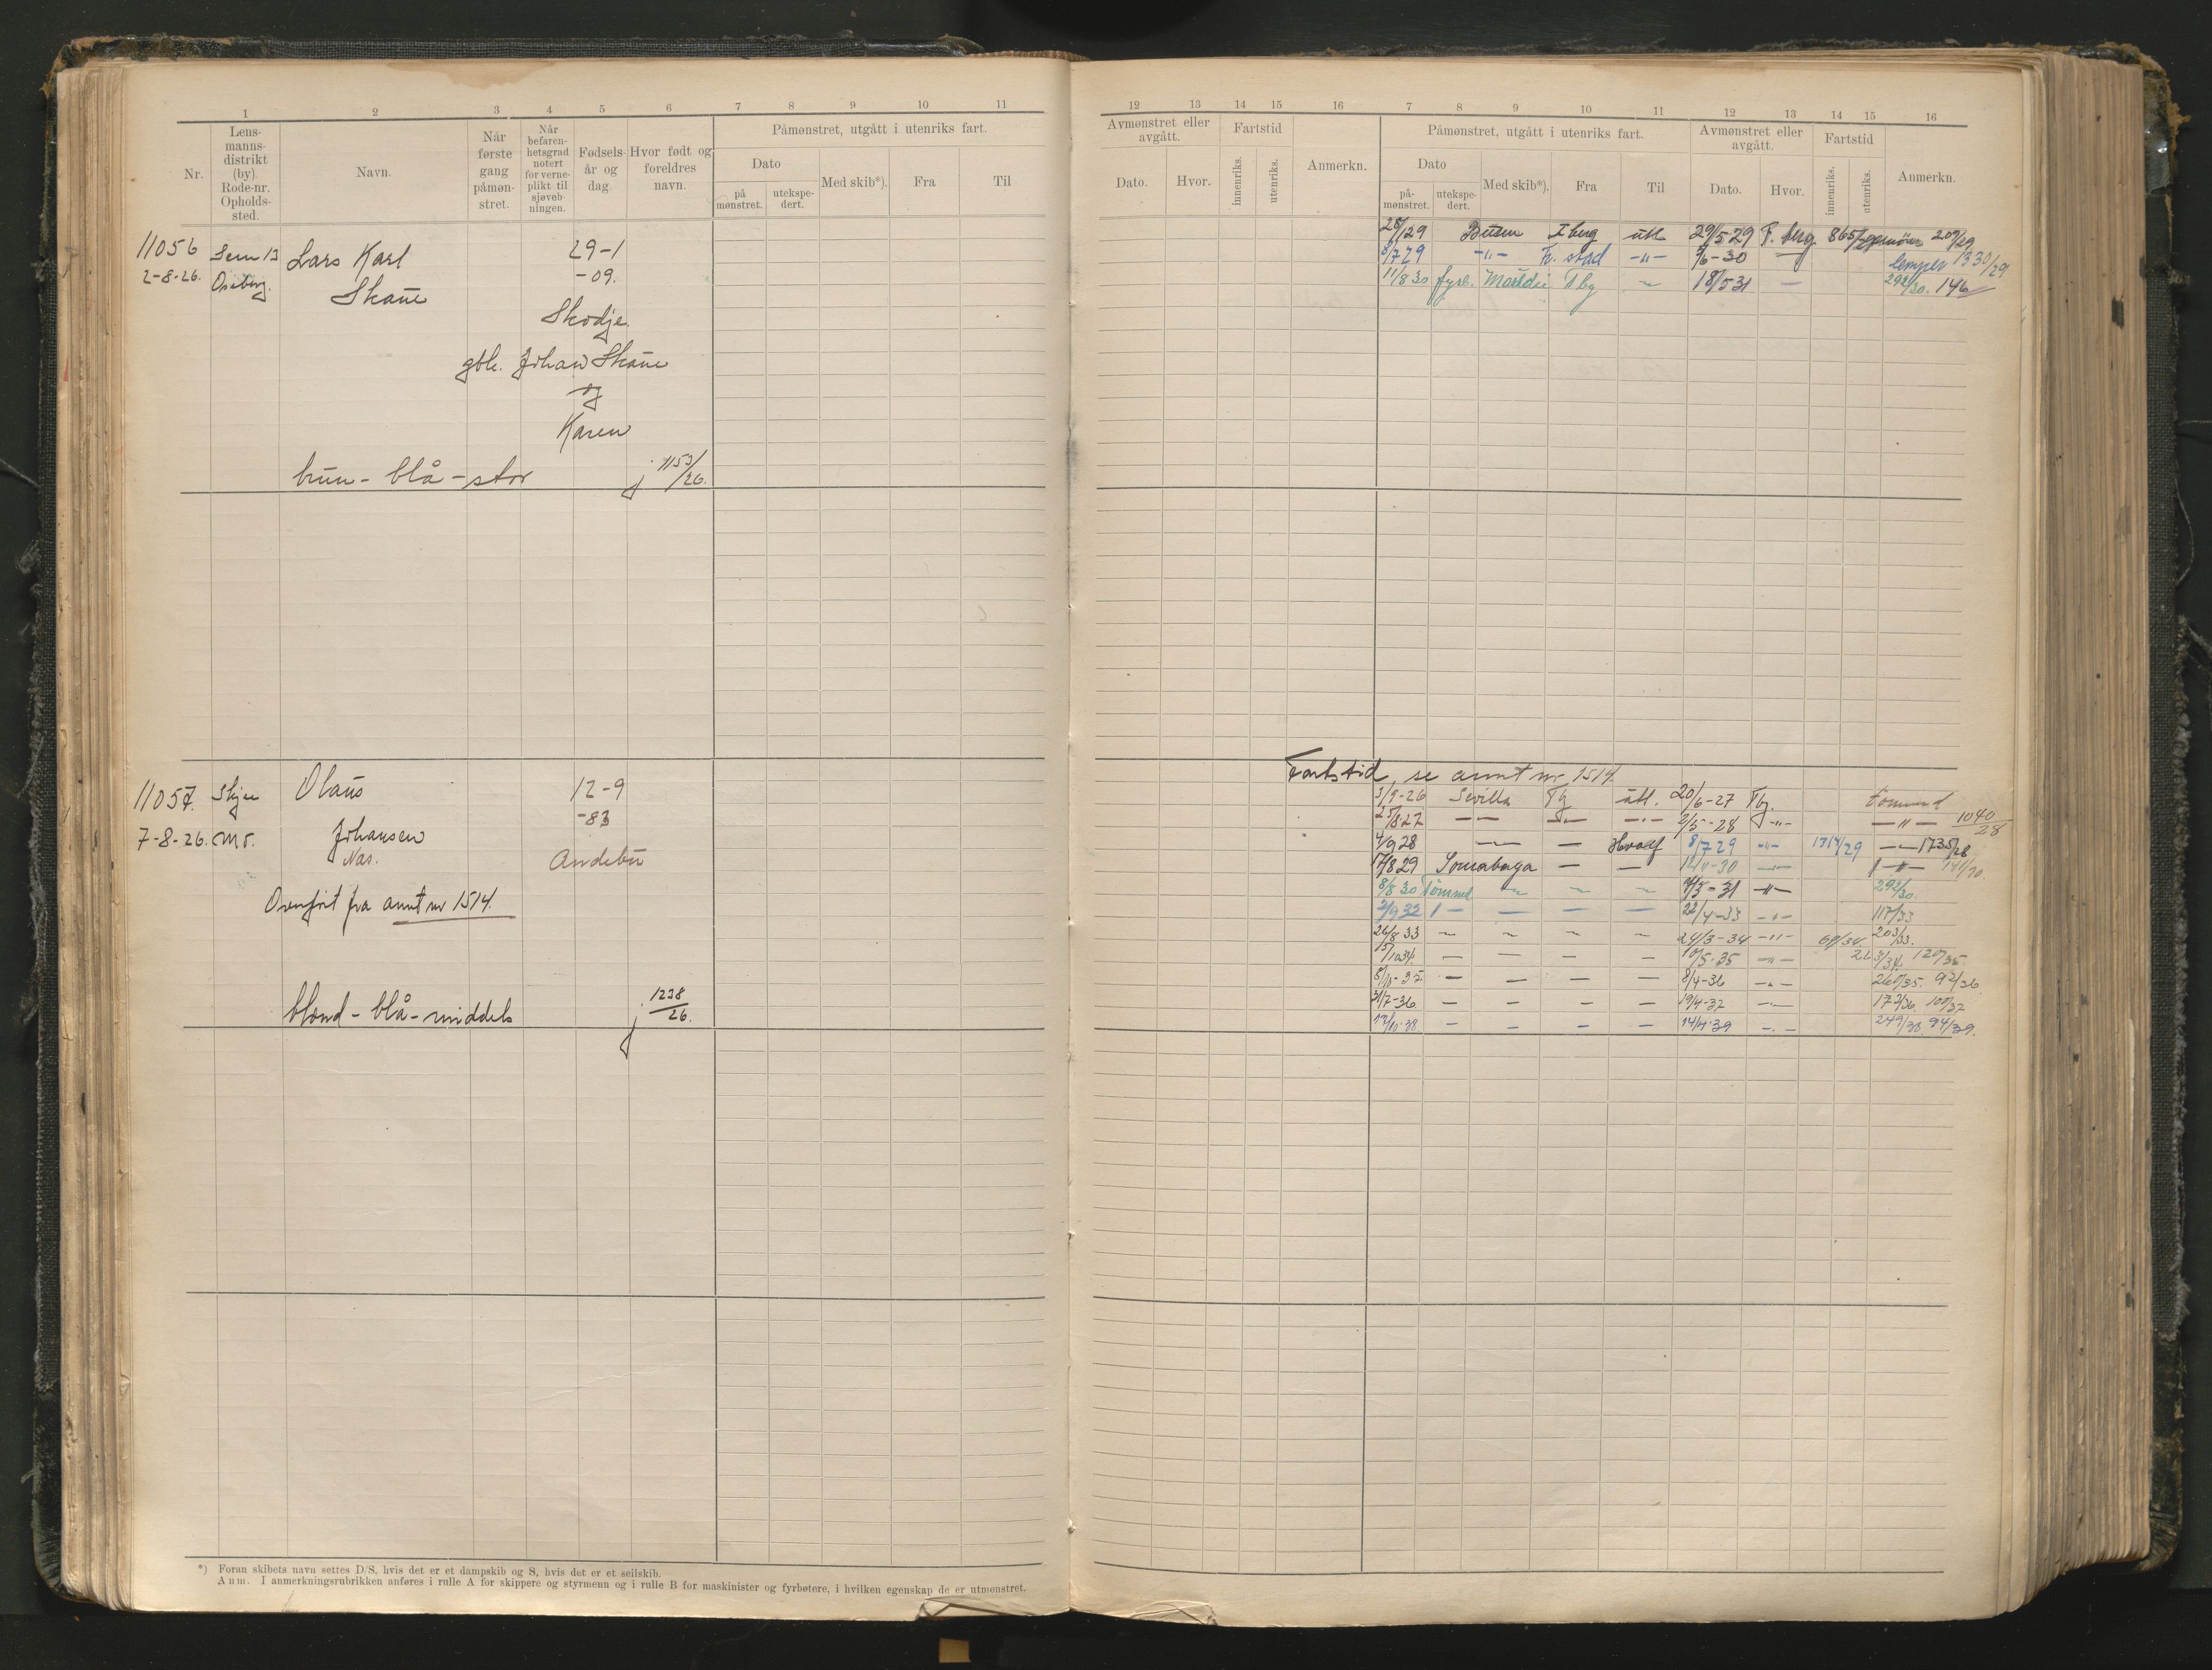 1 2 3 4 5 6 7 8 9 10 11
Nr.
Lens-
manns-
distrikt
(by).
Rode-nr.
Opholds-
sted.
Navn.
Når
første
gang
påmøn-
stret.
Når
befaren-
hetsgrad
notert
for verne-
plikt til
sjøveb-
ningen.
Fødsels-
år og
dag.
Hvor født og
foreldres
navn.
Påmønstret, utgått i utenriks fart.
Dato
på
mønstret.
utekspe-
dert.
Med skib*).
Fra
Til
11056 Sem 13 Lars Karl 29-1
2-8-26. Oseberg. Skane -09.
Skodje
gbk. Johan Skane
og
Karen
brun - blå - stor j 1153/26.
11057. Skjee Olaus 12-9
7-8-26. Mo. Johansen -83
Nas. Andebu
Overført fra annt nr 1514.
blond - blå - middels j 1238/26.
*) Foran skibets navn settes D/S, hvis det er et dampskib og S, hvis det er et seilskib.
Anm. I anmerkningsrubrikken anføres i rulle A for skippere og styrmenn og i rulle B for maskinister og fyrbøtere, i hvilken egenskap de er utmønstret.
12 13 14 15 16 7 8 9 10 11 12 13 14 15 16
Avmønstret eller
avgått.
Dato.
Hvor.
Fartstid
innenriks.
utenriks.
Anmerkn.
Påmønstret, utgått i utenriks fart.
Dato
på-
mønstret.
utekspe-
dert.
Med skib*).
Fra
Til
Avmønstret eller
avgått.
Dato.
Hvor.
Fartstid
innenriks.
utenriks.
Anmerkn.
Busen Tberg utl 29/5 29 T.berg 209/29
8/7 29 -"- Fr. stad -"- 5/6-30 — lemper 1330/29
11/8 30 fyrb. Tbg ~ 18/5 31 — 292/30. 146
Fartstid, se annt nr 1514.
3/9-26 Sevilla Tbg utl. 20/6-27 Tbg. tømmerm
25/8 27 — — — 2/5-28 -"- —"— 1040/28
4/9 28 — — Hvalf 8/7 29 -"- 1314/29 — 1735/28
17/8 29 Sourabaya — — -30 -"- -"- 141/30.
8/8 30 Tømmed ~ ~ ~ -31 -"- 292/30.
2/9 32 — — — 22/4-33 -"- 117/33
26/8 33 ~ ~ ~ ~ 24/3-34 -"- 69/34 203/33.
5/10 34. — — — — 10/5-35 -"- 263/34. 120/35
— — — — 8/4-36 -"- 260/35. 92/36
31/7-36 — — — — 19/4-37 -"- 173/36 100/37
13/10-38 — — — — 14/4-39 -"- 249/38 94/39.